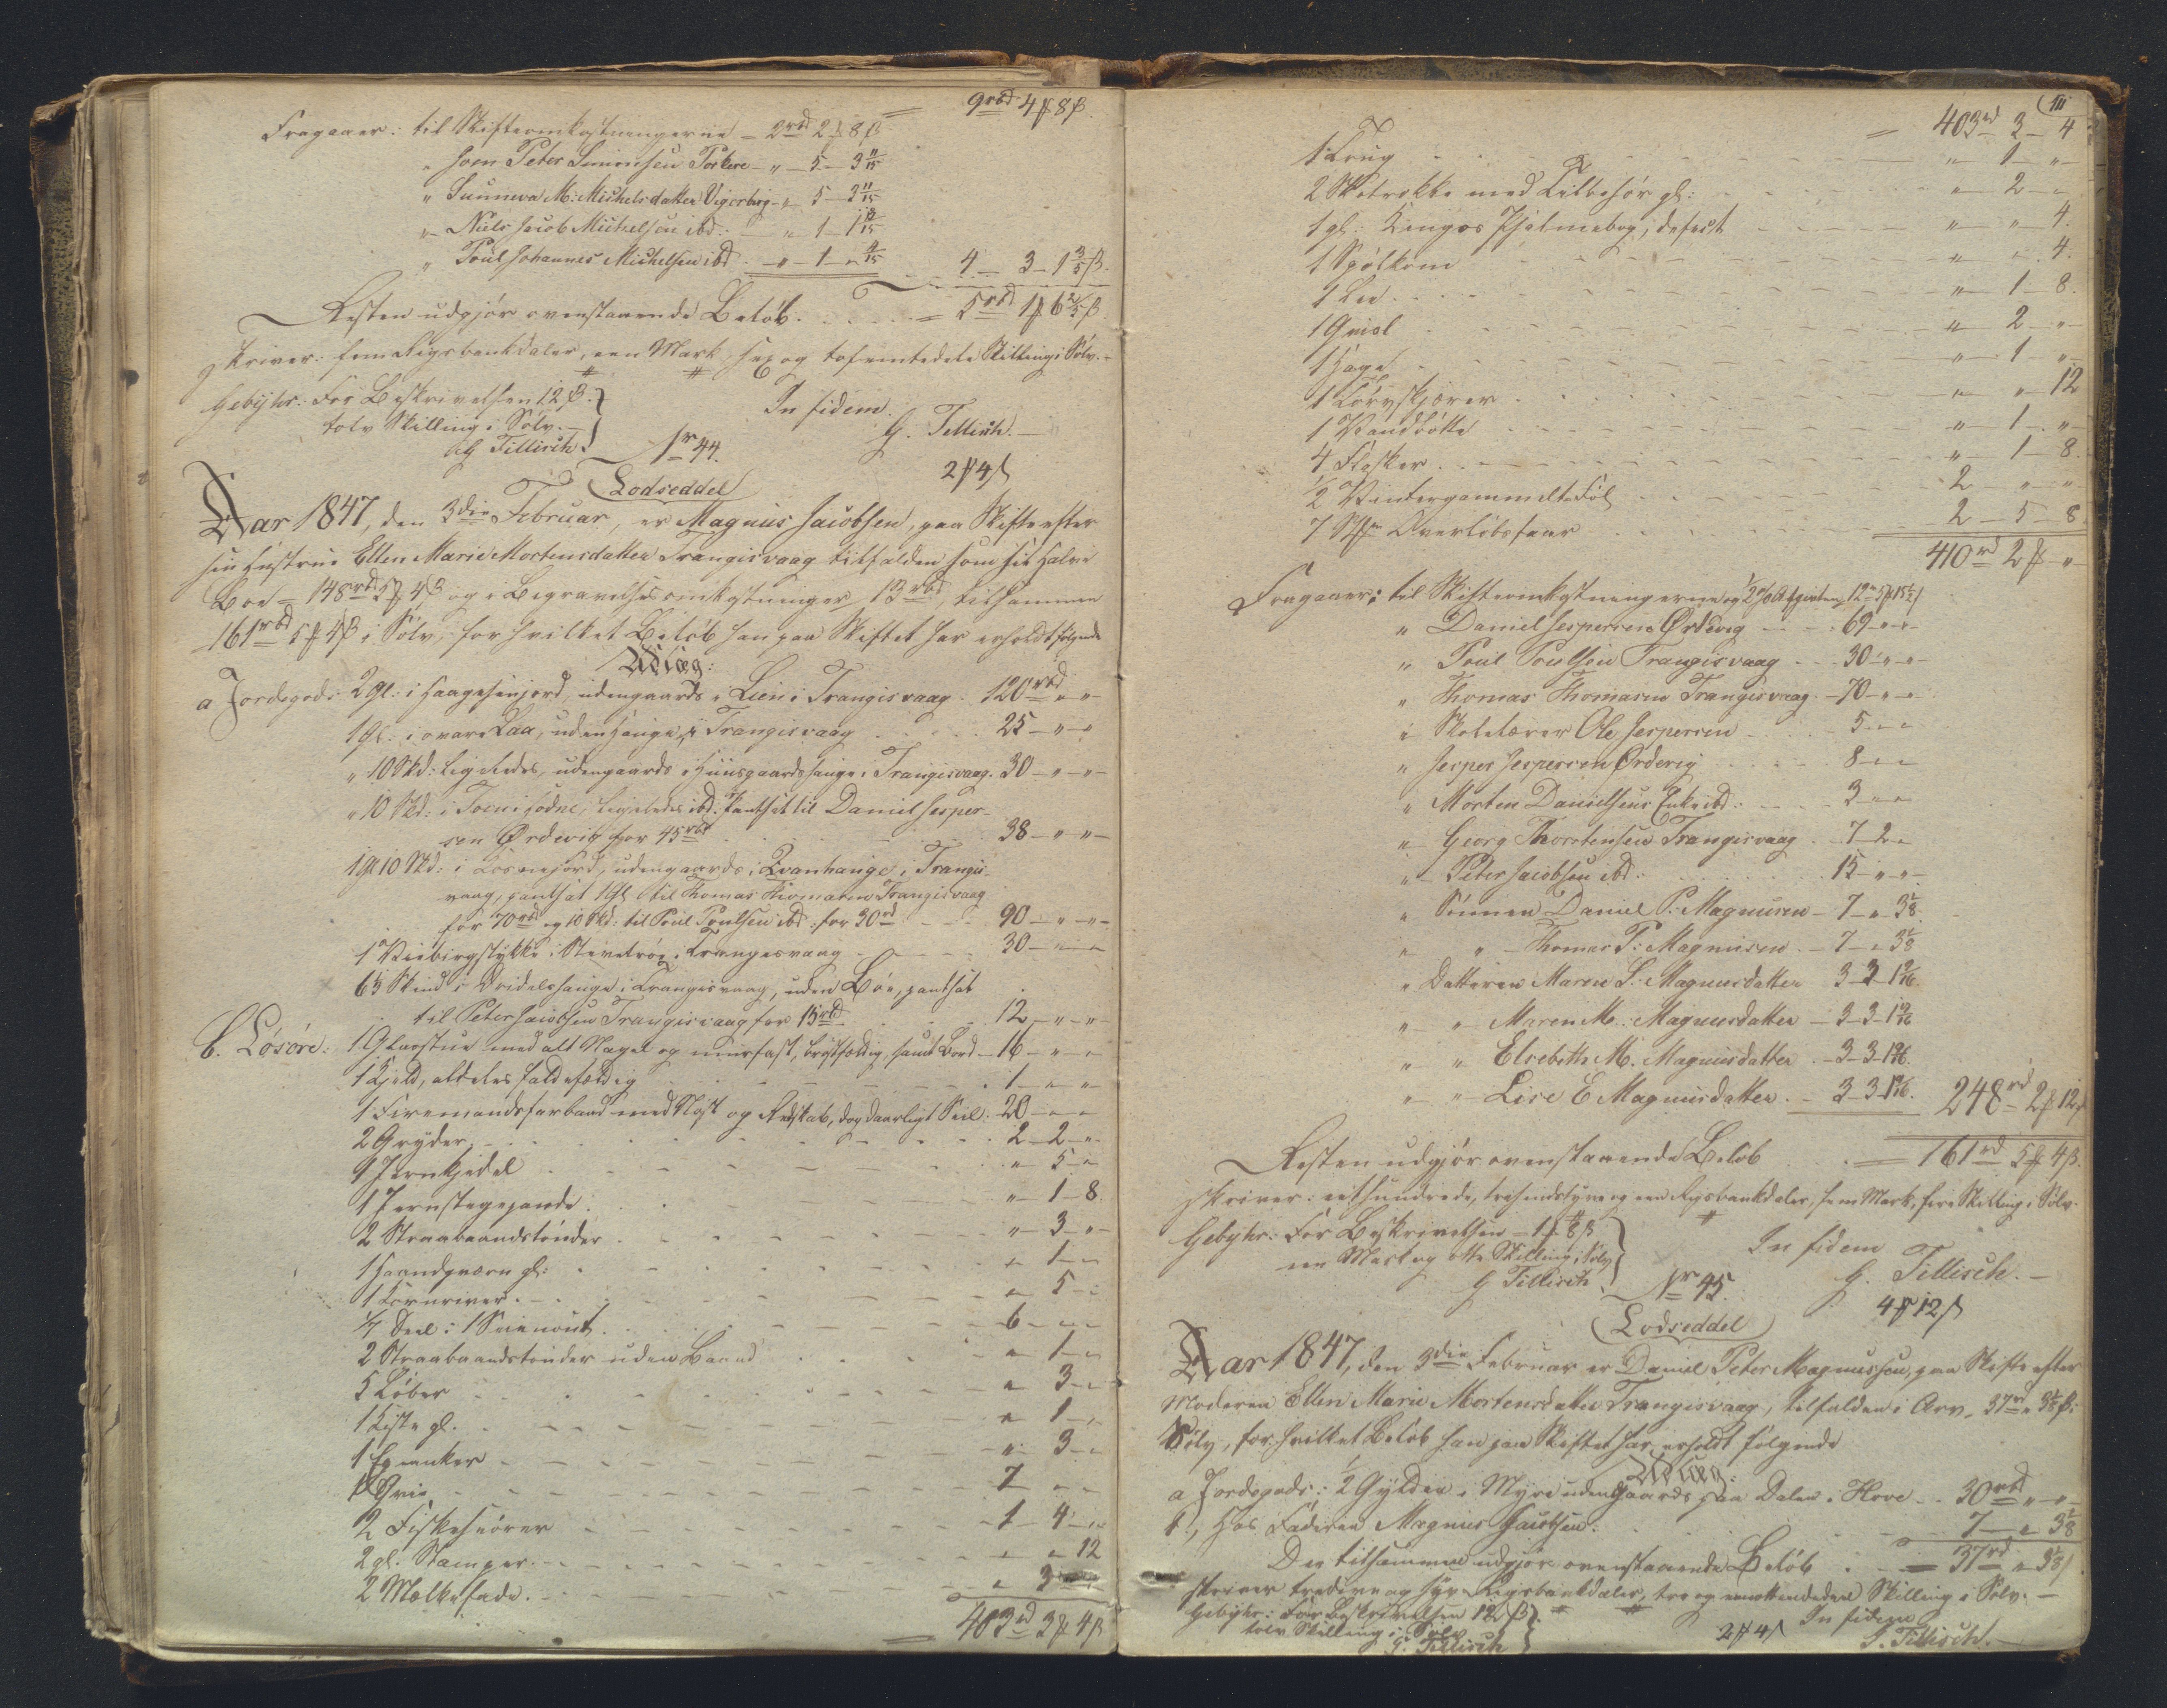 = 9rbd 4ß 8β.
Fragaaer: til Skifteomkostningerne – 2rbd 2 8β
" Joen Peter Simonsen Porkere – " – 5 – 3 11/15
" Sunneva M: Michelsdatter Vigerberg – " 5 – 3 11/15
" Niels Jacob Michelsen ibd. – " 1 – 1
" Poul Johannes Michelsen ibd – " – 1 – " 4 – 3 – 1 3/5 β.
Resten udgjör ovenstaaende Belöb = 5rbd 1 6 2/5 β.
skriver: fem Rigsbankdaler, een Mark, sex og tofemtedele Skilling i Sölv.
Gebyhr: For Beskrivelsen 12 β.
tolv Skilling i Sölv.
G Tillisch
In fidem
G. Tillisch.
Nr 44.
2 4
Lodseddel
Aar 1847, den 3die Februar, er Magnus Jacobsen, paa Skifte efter
sin Hustrue Ellen Marie Mortensdatter Trangisvaag tilfalden som sit halve
Boe – 148rbd 5 4β og i Begravelsesomkostninger 13rbd, tilsammen
161rbd 5 4β i Sölv, for hvilket Belöb han paa Skiftet har erholdt fölgende
Udlæg:
a Jordegods: 2 Gl: i Haagesinjord, udengaards i Lien i Trangisvaag. 120rbd " "
1 Gl. i övare Laa, uden Hauge, i Trangisvaag 25 – " – "
" 10 Skd: ligeledes, udengaards i Huusgaardshauge i Trangisvaag. 30 – " – "
" 10 Skd: i ligeledes ibd. Pantsat til Daniel Jesper-
sen Ørdevig for 45rbd 38 – " – "
1 Gl 10 Skd: i udengaards i Qvanhauge i Trangis-
vaag, pantsat 1 Gl til Thomas Thomasen Trangisvaag
for 70rd og 10 Skd: til Poul Poulsen ibd. for 30rd 90 – " – "
1 i Trangisvaag 30 – " – "
6½ Skind i i Trangisvaag, uden Böe, pantsat
til Peter Jacobsen Trangisvaag for 15rbd 12 – " – "
b. Lösöre: 1 Glarstue med alt Nagel og muurfast, samt Bord – 16 – " – "
1 Kjeld, aldeles faldefærdig 1 – " – "
1 Firemandsfarbaad med Nöst og Redskab, dog daarligt Seil. 20 – " – "
2 Gryder 2 – 2 – "
1 Jernkjedel " 5 – "
1 Jernstegepande " – 1 – 8
2 Straabaandstönder " – 3 – "
1 Haandqværn gl: " 1 – "
1 Kornriver " 5 – "
¼ Deel i 1 6 – " – "
2 Straabaandstönder uden Baand " – 1 – "
5 Löber " 3 – "
1 Kiste gl. " 1 – "
1 " 3 – "
1 Qvie 7 " "
2 Fiskesnörer 1 – 4 – "
2 gl. Stamper " " 12
2 Mælkefade " 3
= 403rd 3 4β
111
= 403rd 3 – 4
1 Krug " 1 – "
2 Skotrokke med Tilbehör gl: " 2 – "
1 gl: Kingos Psalmebog, defect " " 4.
1 Spölkom " " 4.
1 Lee " 1 – 8.
1 Qvisl " 2 – "
1 Hage " 1 – "
1 Törvskjærer " " 12
1 Vandbötte " – 1 – "
4 Flasker " – 1 – 8.
½ Vintergammelt Föl 2 – " – "
7 Overlöbsfaar 2 – 5 – 8
410rd 2 – "
Fragaaer: til Skifteomkostningerne og ½ % Afgiften, 12rd 5 15½
" Daniel Jespersen Ørdevig – 69 – " –
" Poul Poulsen Trangisvaag – 30 – " –
" Thomas Thomasen Trangisvaag – 70 – " –
" Skolelærer Ole Jespersen – 5 – " –
" Jesper Jespersen Ørdevig 8 – " –
" Morten Danielsens Enke ibd: 3 – " –
" Georg Thorstensen Trangisvaag 7 – 2 – "
" Peter Jacobsen ibd. 15 – " – "
" Sönnen Daniel P. Magnusen – 7 – " 3 1/8
" " Thomas P: Magnusen – 7 – " 3 1/8
" Datteren Maren S: Magnusdatter 3 – 3 – 1 9/16.
" " Maren M: Magnusdatter – 3 – 3 – 1 9/16
" " Elsebeth M. Magnusdatter – 3 – 3 – 1 9/16.
" " Lise E Magnusdatter – 3 – 3 – 1 9/16. 248rd 2 12
Resten udgjör ovenstaaende Belöb = 161rd 5 4β.
skriver: eethundrede, tresindstyve og een Rigsbankdaler, fem Mark, fire Skilling i Sölv.
Gebyhr: For Beskrivelsen – 1 8β
een Mark og otte Skilling i Sölv
G Tillisch
In fidem
G. Tillisch.
Nr 45.
4 12
Lodseddel
Aar 1847, den 3die Februar er Daniel Peter Magnussen, paa Skifte efter
Moderen Ellen Marie Mortensdatter Trangisvaag, tilfalden i Arv, 37rd " 3 1/8 β i
Sölv, for hvilket Belöb han paa Skiftet har erholdt fölgende
Udlæg:
a Jordegods: ½ Gylden i Myre udengaards paa Dalen i Hove 30rbd " – "
b, Hos Faderen Magnus Jacobsen: 7 – " 3 1/8
Der tilsammen udgjör ovenstaaende Belöb = 37rd " 3 1/8
skriver tredive og syv Rigsbankdaler, tre og een ottendedeel Skilling i Sölv.
Gebyhr: For Beskrivelsen 12 β
tolv Skilling i Sölv
G. Tillisch
2 4
In fidem
G. Tillisch.